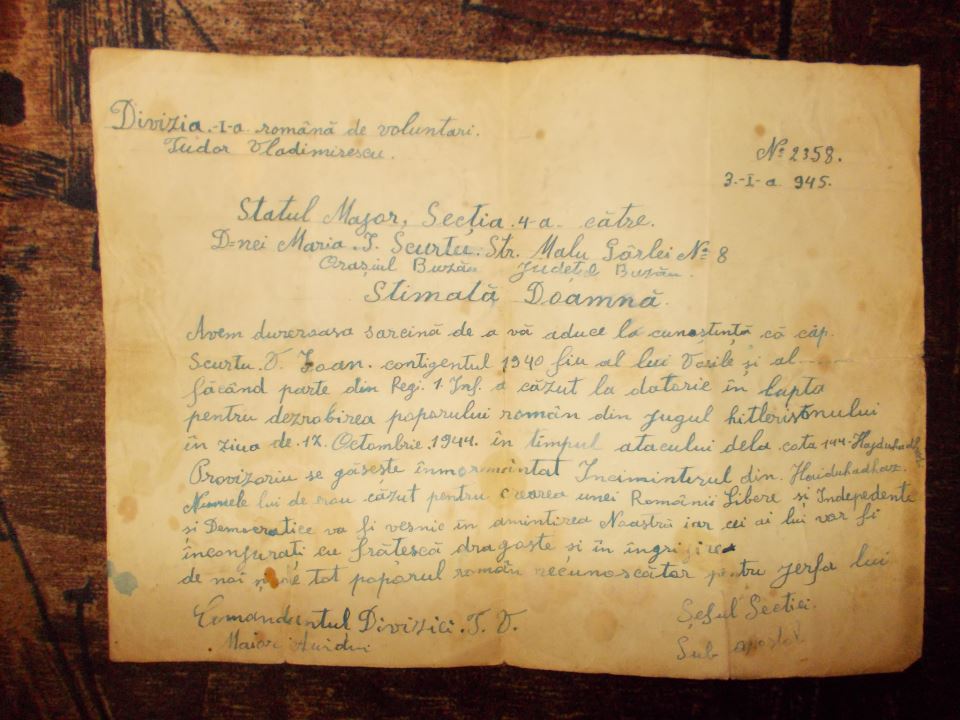 Divizia.-I-a. română de voluntari.
Tudor Vladimirescu.
№ 2358.
3.-I-a. 945.
Statul Major, Secția. 4-a. către.
D=nei Maria. I. Scurtu. Str. Malu Gârlei № 8
Orașiul Buzău Județul Buzău.
Stimată Doamnă.
Avem dureroasa sarcină de a vă aduce la cunoștință că căp.
Scurtu. V. Ioan. contigentul 1940 fiu al lui Vasile și al
făcând parte din Regi. 1. Inf. a căzut la datorie în lupta
pentru dezrobirea poporului român din jugul hitleristonului
în ziua de. 17. Octombrie. 1944. în timpul atacului dela cota 144-
Provizoriu se găsește înmormântat Incimintirul din. Haiduhadhaz.
Numele lui de erou căzut pentru crearea unei Românii Libere și Independente
și Democratice va fi veșnic în amintirea Noastră iar cei ai lui vor fi
înconjurați cu frățescă dragoste și în îngrijirea
de noi și de tot poporul român recunoscător pentru jerfa lui
Comandantul Diviziei. T. V.
Maior
Șeful Secției.
Sub